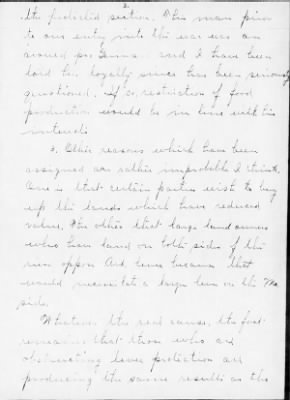 the protected section. This man prior
to our entry into the war was an
avowed pro German and I have been
told his loyalty since has been seriously
questioned. If so, restriction of food
production would be in line with his
interests
3. Other reasons which have been
assigned are rather improbable I think.
One is that certain parties wish to buy
up the lands which have reduced
value. The other that large land owners
who have land on both sides of the
river oppose Ark levee because that
would necessitate a larger levee on the Mo
side.
Whatever the real cause, the fact
remains that those who are
obstructing levee protection are
producing the same results as the